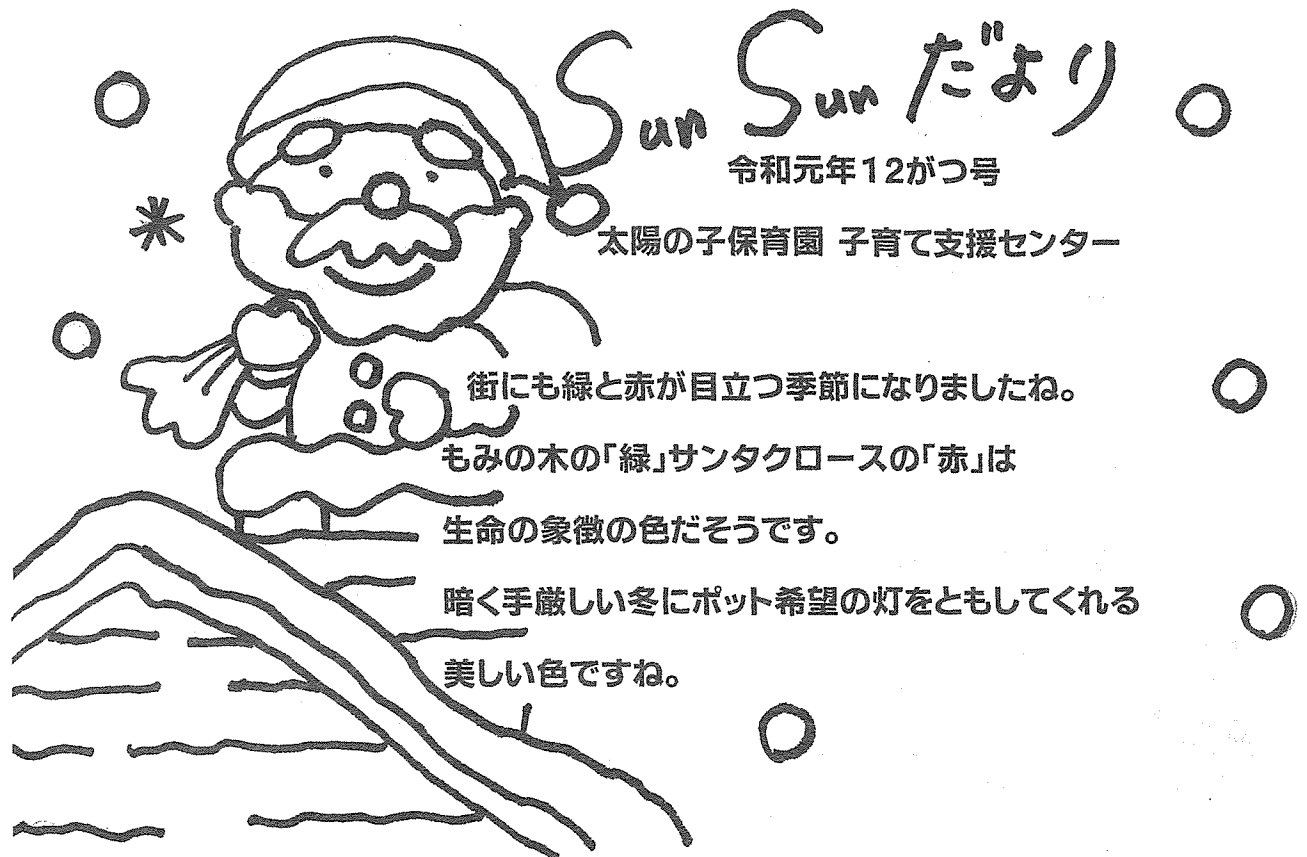 Sun Sun だより
令和元年12がつ号
太陽の子保育園 子育て支援センター
街にも緑と赤が目立つ季節になりましたね。
もみの木の「緑」サンタクロースの「赤」は
生命の象徴の色だそうです。
暗く手厳しい冬にポット希望の灯をともしてくれる
美しい色ですね。